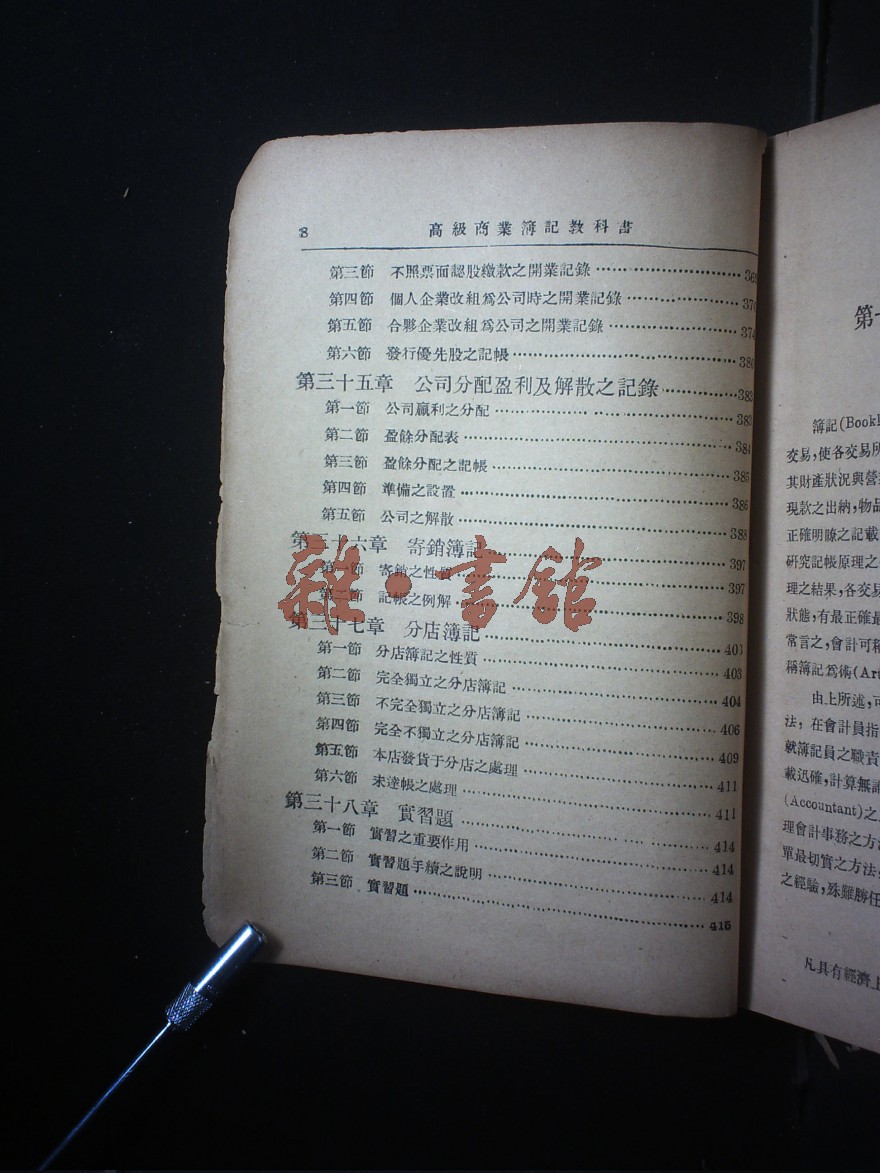 8 高級商業簿記教科書
第三節 不照票面認股繳款之開業記錄
第四節 個人企業改組爲公司時之開業記錄
第五節 合夥企業改組爲公司之開業記錄 374
第六節 發行優先股之記帳 380
第三十五章 公司分配盈利及解散之記錄 383
第一節 公司贏利之分配 383
第二節 盈餘分配表 384
第三節 盈餘分配之記帳 385
第四節 準備之設置 386
第五節 公司之解散 388
第三十六章 寄銷簿記 397
第一節 寄銷之性質 397
第二節 記帳之例解 398
第三十七章 分店簿記 403
第一節 分店簿記之性質 403
第二節 完全獨立之分店簿記 404
第三節 不完全獨立之分店簿記 406
第四節 完全不獨立之分店簿記 409
第五節 本店發貨于分店之處理 411
第六節 未達帳之處理 411
第三十八章 實習題 414
第一節 實習之重要作用 414
第二節 實習題手續之說明 414
第三節 實習題 415
雜·書館
第
簿記(Book
交易,使各交易所
其財產狀況與營
現款之出納,物品
正確明瞭之記載
研究記帳原理之
理之結果,各交易
狀態,有最正確最
常言之,會計可稱
稱簿記爲術(Art
由上所述,可
法,在會計員指
就簿記員之職責
載迅確,計算無
(Accountant)之
理會計事務之方
單最切實之方法
之經驗,殊難勝任
凡具有經濟上